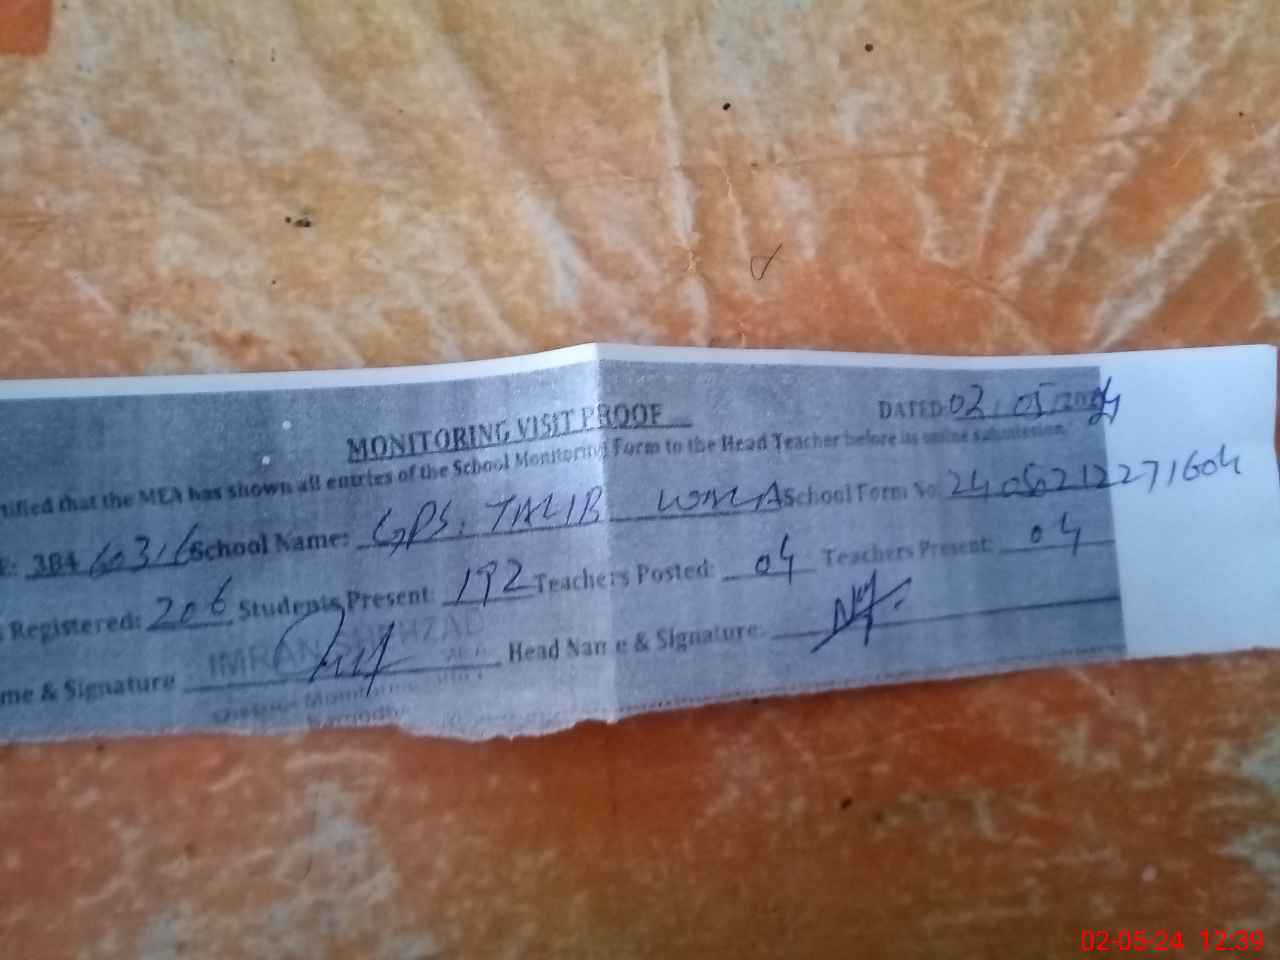 MONITORING VISIT PROOF DATED 02.05.2024
rtified that the MEA has shown all entries of the School Monitoring Form to the Head Teacher before its online submission.
E: 384 60316 School Name: GPS, TALIB WALA School Form No. 24050212271604
s Registered: 206 Students Present: 192 Teachers Posted: 04 Teachers Present: 04
me & Signature IMRAN SHEHZAD Head Name & Signature:
District Monitoring
Sargodha
02-05-24 12:39